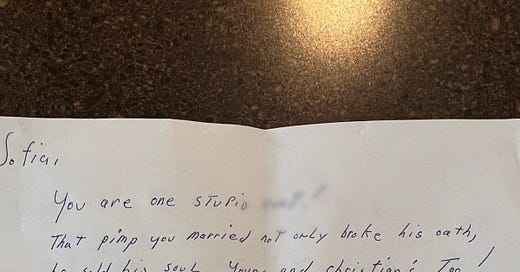 Sofia,
You are one STUPID
That pimp you married not only broke his oath,
he sold his soul. Yours and christian's Too!